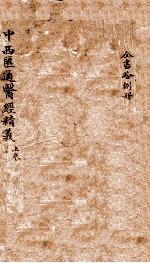 全書拾捌册
中西匯通醫經精義 上卷